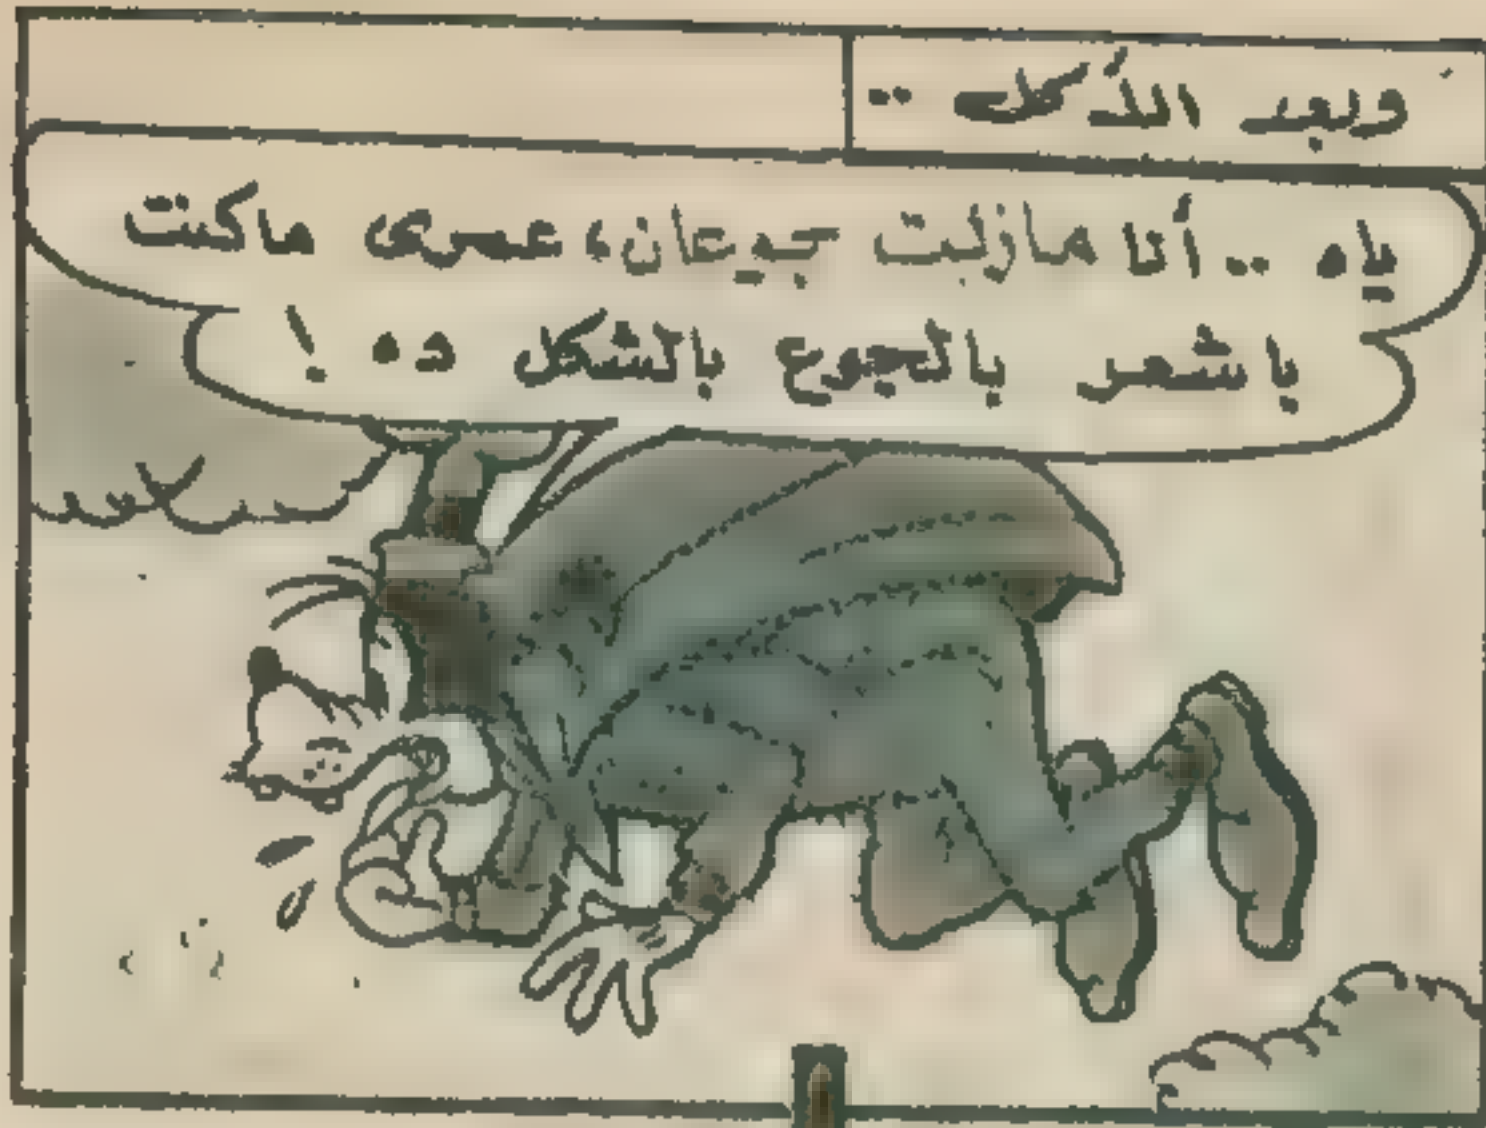 وبعد الأكل ..
ياه .. أنا مازلت جوعان، عمرى ماكنت
باشعر بالجوع بالشكل ده !